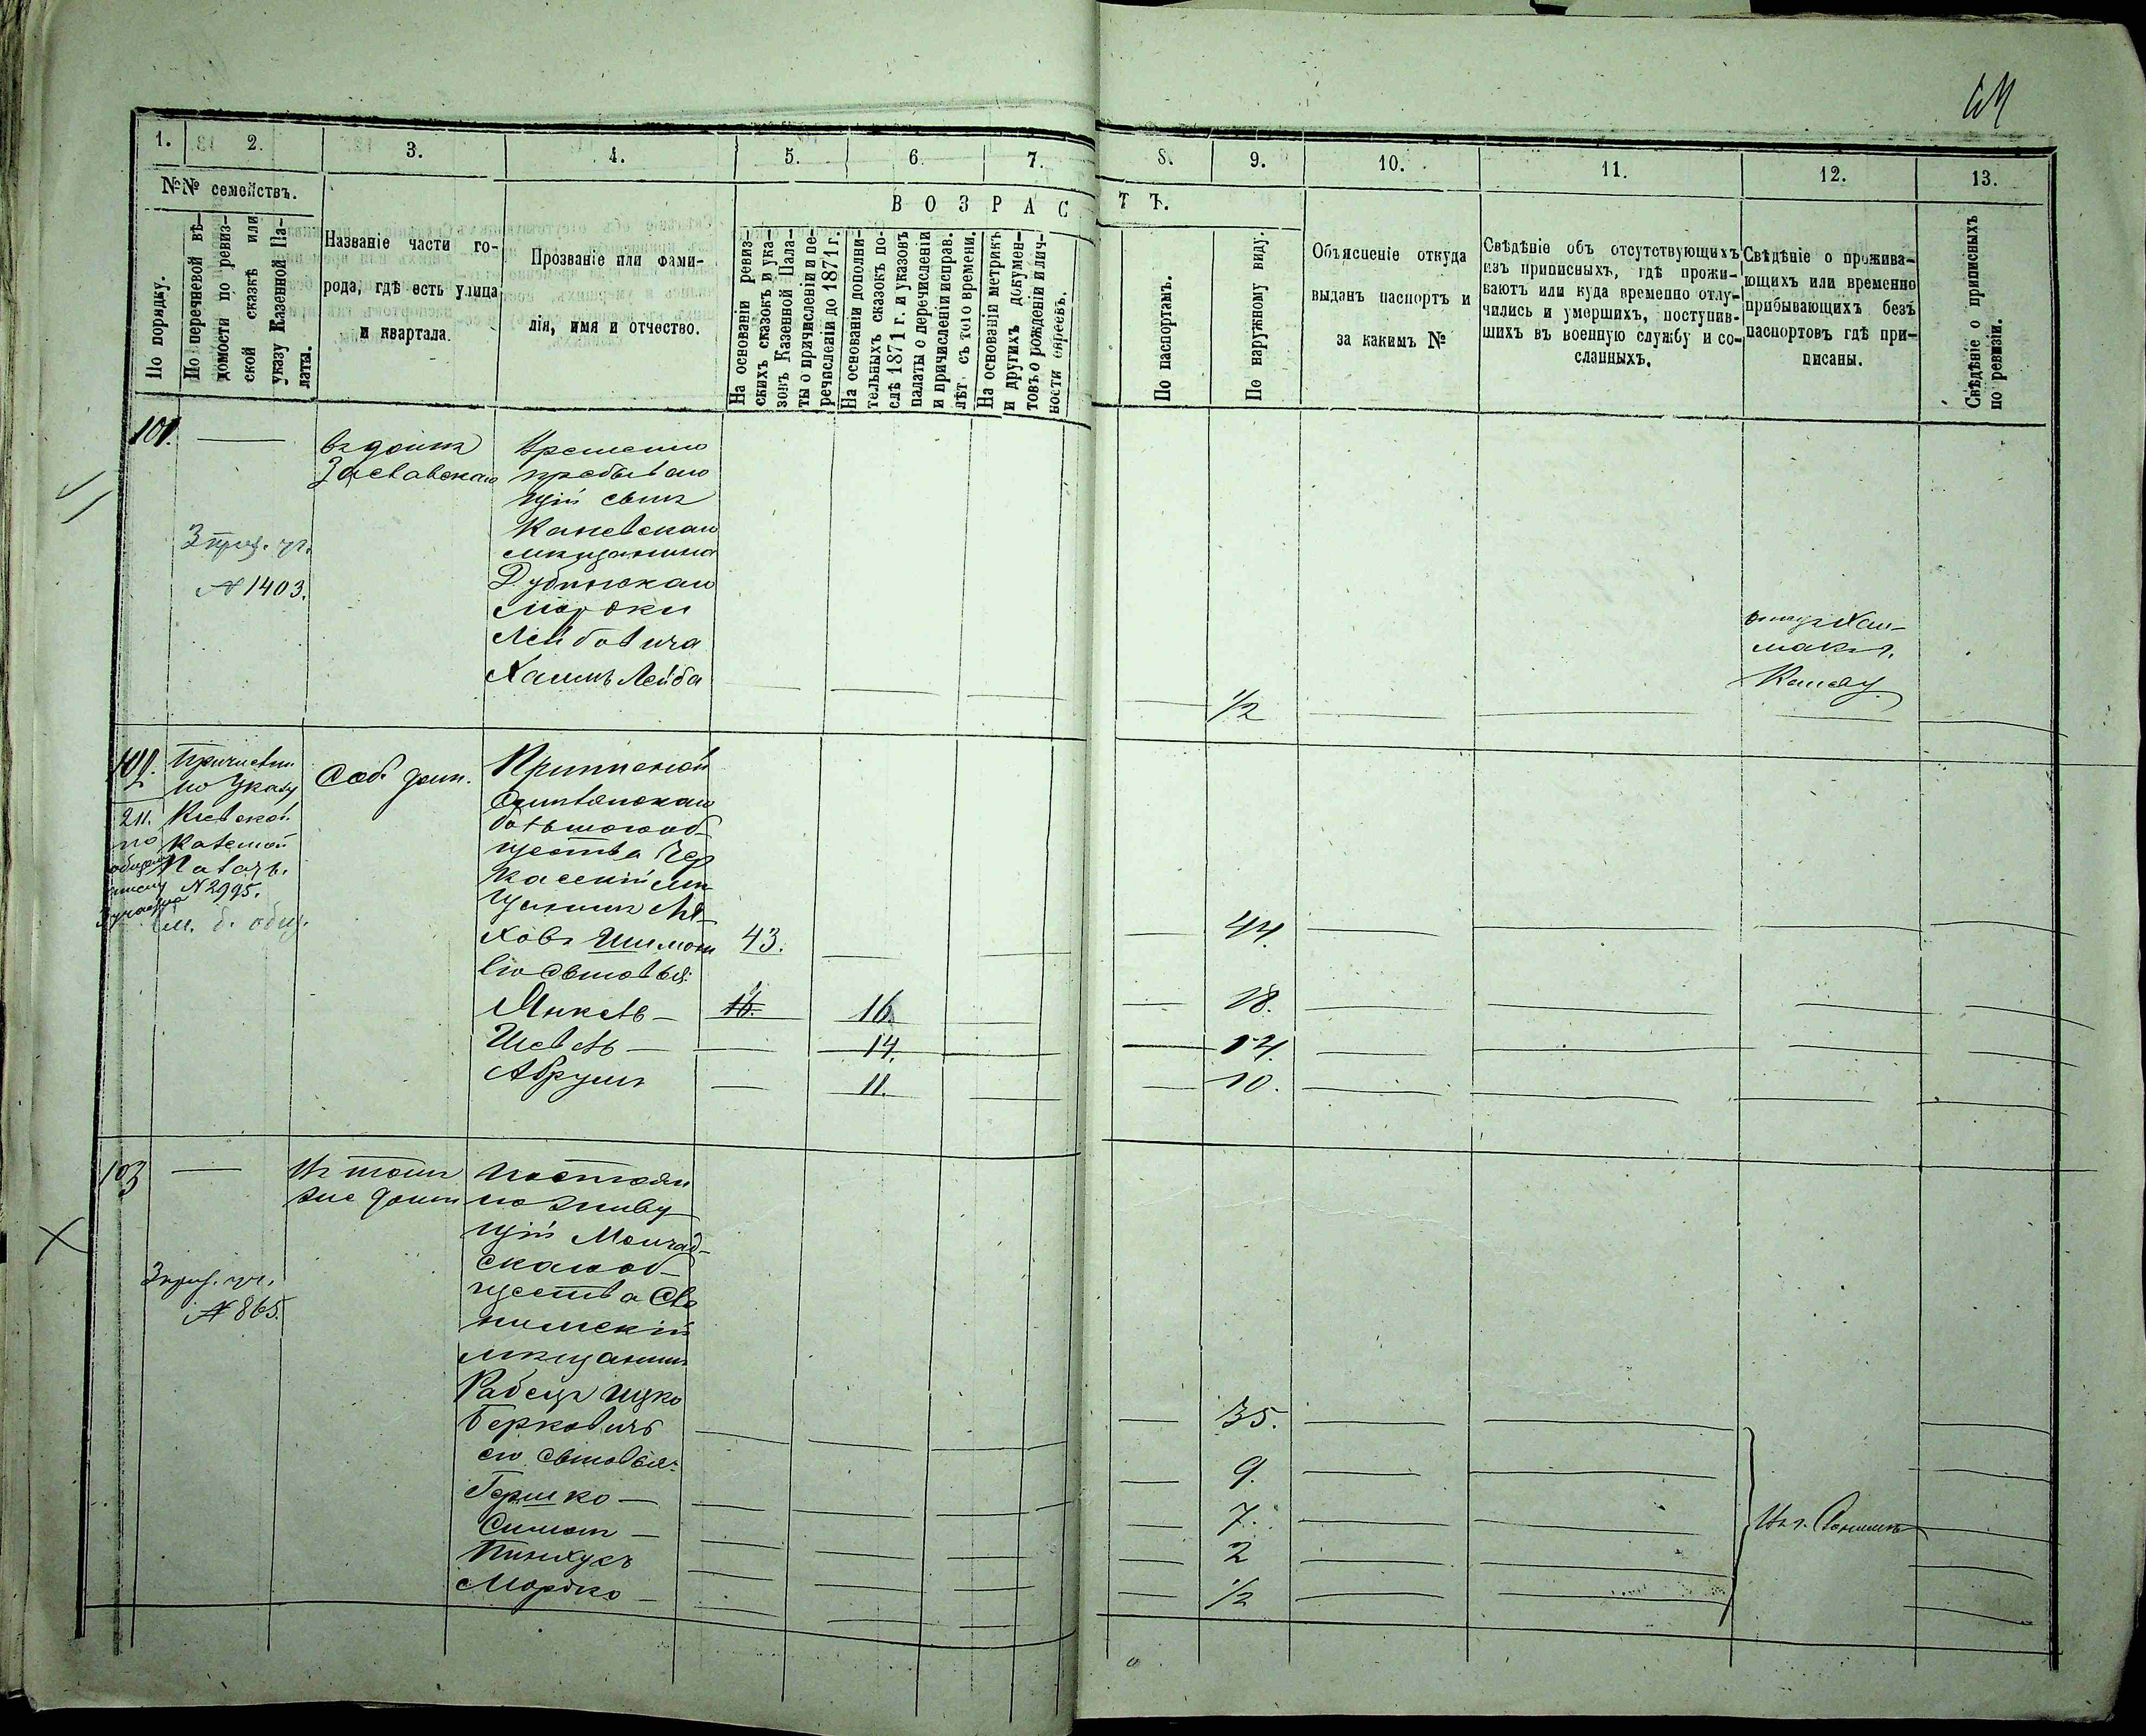 1. 2. 3. 4. 5. 6. 7. 8. 9. 10. 11. 12. 13.
№№ семействъ.
По порядку.
По перечневой вѣ-
домости по ревиз-
ской сказкѣ или
указу Казенной Па-
латы.
Названіе части го-
рода, гдѣ есть улица
и квартала.
Прозваніе или фами-
лія, имя и отчество.
ВОЗРАСТЪ.
На основаніи ревиз-
скихъ сказокъ и ука-
зовъ Казенной Пала-
ты о причисленіи и пе-
речисленіи до 1871 г.
На основаніи дополни-
тельныхъ сказокъ по-
слѣ 1871 г. и указовъ
палаты о перечисленіи
и причисленіи исправ.
лѣт. съ того времени.
На основаніи метрикъ
и другихъ докумен-
товъ о рожденіи и лич-
ности евреевъ.
По паспортамъ.
По наружному виду.
Объясненіе откуда
выданъ паспортъ и
за какимъ №
Свѣдѣніе объ отсутствующихъ
изъ приписныхъ, гдѣ прожи-
ваютъ или куда временно отлу-
чились и умершихъ, поступив-
шихъ въ военную службу и со-
сланныхъ.
Свѣдѣніе о прожива-
ющихъ или временно
прибывающихъ безъ
паспортовъ гдѣ при-
писаны.
Свѣдѣніе о приписныхъ
по ревизіи.
101.
въ домѣ
Заславскаго
Временно
пребываю
щій сынъ
Каневскаго
мѣщанина
Дубинскаго
Мордки
Лейбовича
Хаимъ Лейба
1/2
№ 1403.
102.
Причислен
по Указу
Кіевской
Казеной
Палаты.
№ 2995.
211.
по
Соб. домъ.
Приписной
общества Чер
касскій мѣ
щанинъ
43.
44.
его сыновья:
Янкель
16. 16 18.
Шевель
14. 14.
Абрумъ
11. 10.
103
Въ томъ
же домѣ
Постоян
но живу
щій Молчад-
скаго об-
щества Сло
нимскій
мѣщанинъ
Рабецъ Ицко
Берковичъ
35.
его сыновья:
Гершко
9.
Симонъ
7.
Пинхусъ
2
Мордко
1/2
№ 865.